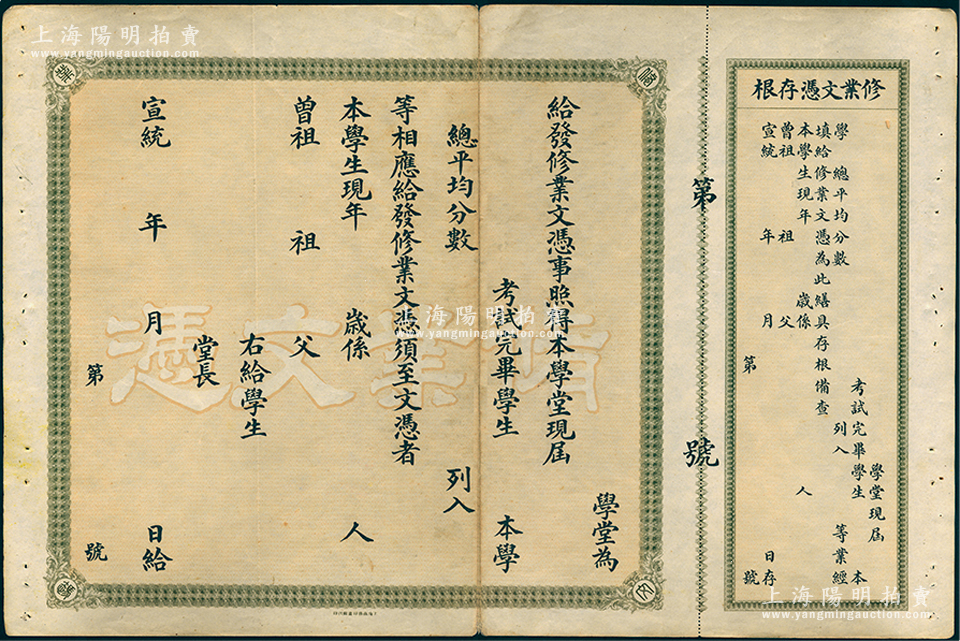 上海陽明拍賣
www.yangmingauction.com
修業文憑存根
學堂現屆
考試完畢學生 本
學 總平均分數 列入 等業經
填給修業文憑為此繕具存根備查
本學生現年 歲係 人
曾祖 祖 父
宣統 年 月 日存
第 號
第 號
學堂為
給發修業文憑事照得本學堂現屆
考試完畢學生 本學
總平均分數 列入
等相應給發修業文憑須至文憑者
本學生現年 歲係 人
曾祖 祖 父
右給學生
堂長
宣統 年 月 日給
第 號
修業文憑
脩業文憑
上海陽明拍賣
www.yangmingauction.com
上海陽明拍賣
www.yangmingauction.com